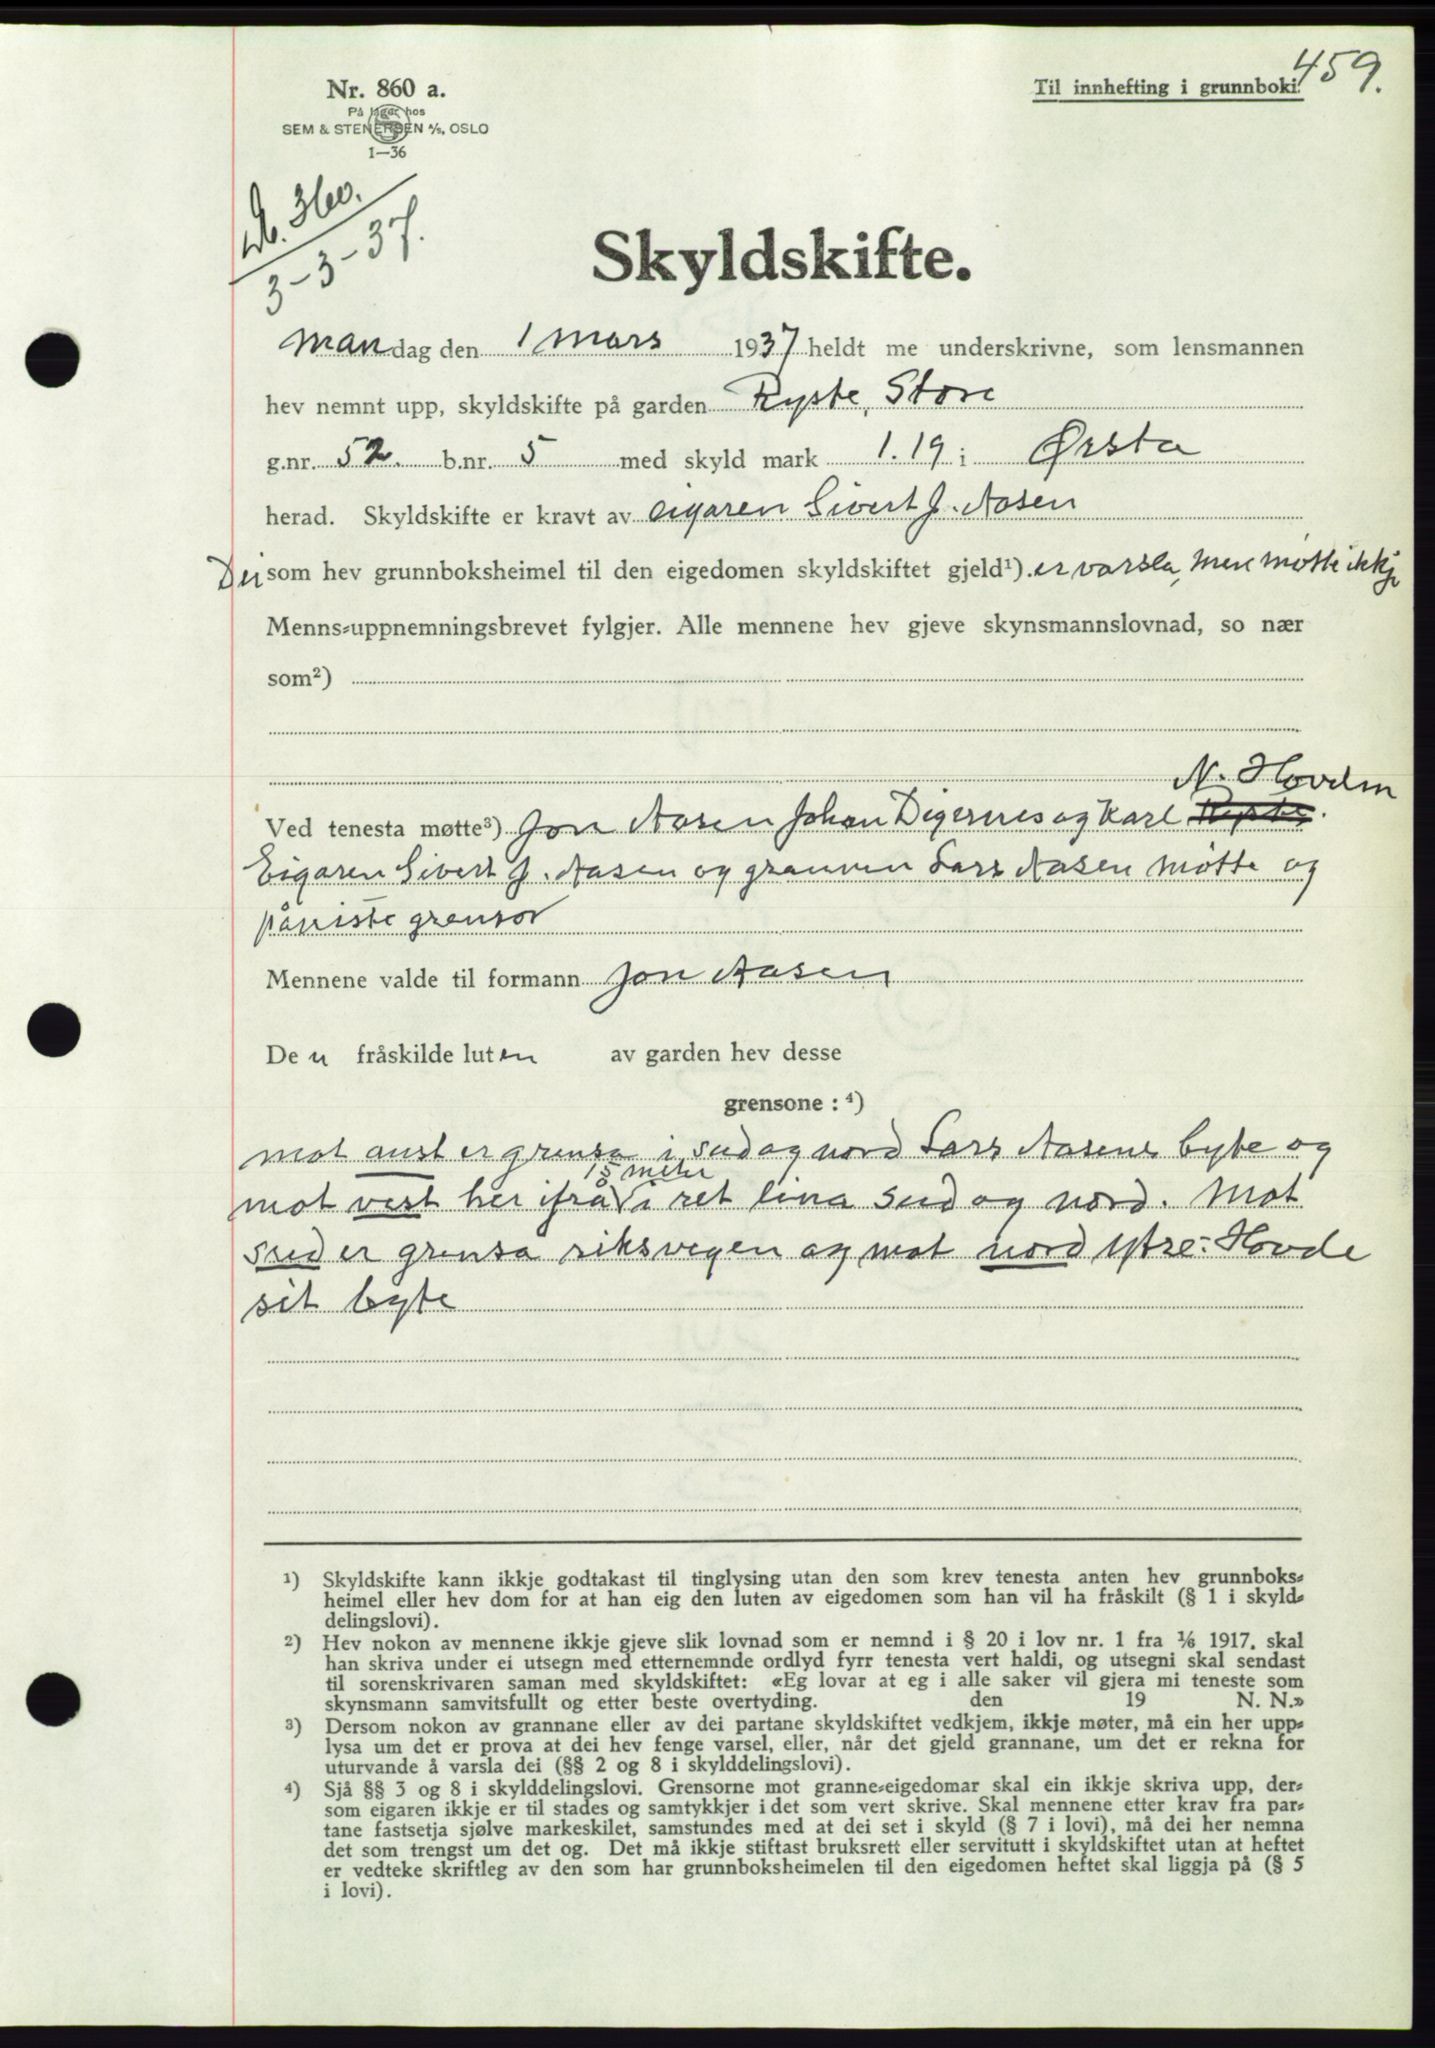 459.
Nr. 860 a.
Til innhefting i grunnboki.
På lager hos
SEM & STENERSEN A/S, OSLO
1—36
Db. 360.
3-3-37.
Skyldskifte.
Mandag den 1 mars 1937 heldt me underskrivne, som lensmannen
hev nemnt upp, skyldskifte på garden Ryste, Store
g.nr. 52. b.nr. 5 med skyld mark 1.19 i Ørsta
herad. Skyldskifte er kravt av eigaren Sivert J. Aasen
Dei som hev grunnboksheimel til den eigedomen skyldskiftet gjeld¹). er varsla, men møtte ikkje
Menns-uppnemningsbrevet fylgjer. Alle mennene hev gjeve skynsmannslovnad, so nær
som²)
N. Hovden
Ved tenesta møtte³) Jon Aasen Johan Digernes og Karl Ryste.
Eigaren Sivert J. Aasen og grannen Lars Aasen møtte og
påviste grensor
Mennene valde til formann Jon Aasen
Den fråskilde luten av garden hev desse
grensone : ⁴)
mot aust er grensa i sud og nord Lars Aasens byte og
15 meter
mot vest her ifrå i ret lina sud og nord. Mot
sud er grensa riksvegen og mot nord ytre-Hovde
sit byte
¹) Skyldskifte kann ikkje godtakast til tinglysing utan den som krev tenesta anten hev grunnboks-
heimel eller hev dom for at han eig den luten av eigedomen som han vil ha fråskilt (§ 1 i skyld-
delingslovi).
²) Hev nokon av mennene ikkje gjeve slik lovnad som er nemnd i § 20 i lov nr. 1 fra ⅙ 1917, skal
han skriva under ei utsegn med etternemnde ordlyd fyrr tenesta vert haldi, og utsegni skal sendast
til sorenskrivaren saman med skyldskiftet: «Eg lovar at eg i alle saker vil gjera mi teneste som
skynsmann samvitsfullt og etter beste overtyding. den 19 N. N.»
³) Dersom nokon av grannane eller av dei partane skyldskiftet vedkjem, ikkje møter, må ein her upp-
lysa um det er prova at dei hev fenge varsel, eller, når det gjeld grannane, um det er rekna for
uturvande å varsla dei (§§ 2 og 8 i skylddelingslovi).
⁴) Sjå §§ 3 og 8 i skylddelingslovi. Grensorne mot granne-eigedomar skal ein ikkje skriva upp, der-
som eigaren ikkje er til stades og samtykkjer i det som vert skrive. Skal mennene etter krav fra par-
tane fastsetja sjølve markeskilet, samstundes med at dei set i skyld (§ 7 i lovi), må dei her nemna
det som trengst um det og. Det må ikkje stiftast bruksrett eller servitutt i skyldskiftet utan at heftet
er vedteke skriftleg av den som har grunnboksheimelen til den eigedomen heftet skal liggja på (§ 5
i lovi).